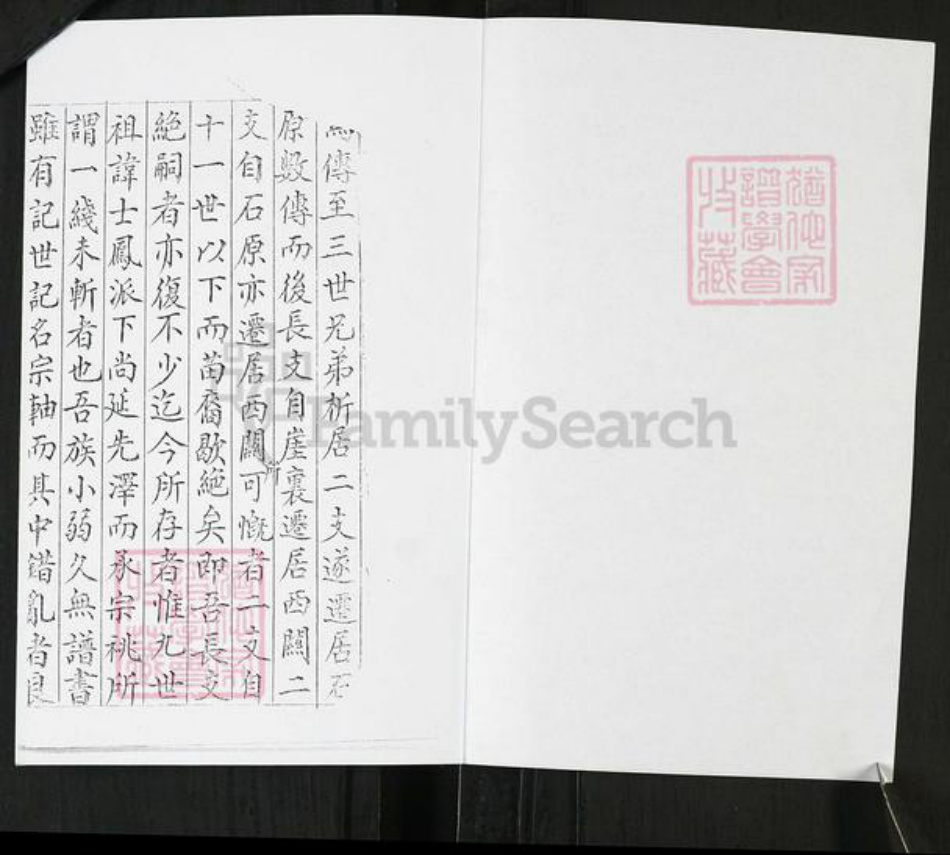 傳至三世兄弟析居二支遂遷居石
原數傳而後長支自崖裏遷居西關二
支自石原亦遷居西關可慨者二支自
所
十一世以下而苗裔歇絕矣即吾長支
絕嗣者亦復不少迄今所存者惟九世
祖諱士鳳派下尚延先澤而承宗祧所
謂一綫未斬者也吾族小弱久無譜書
雖有記世記名宗軸而其中錯亂者良
FamilySearch
譜學會
收藏